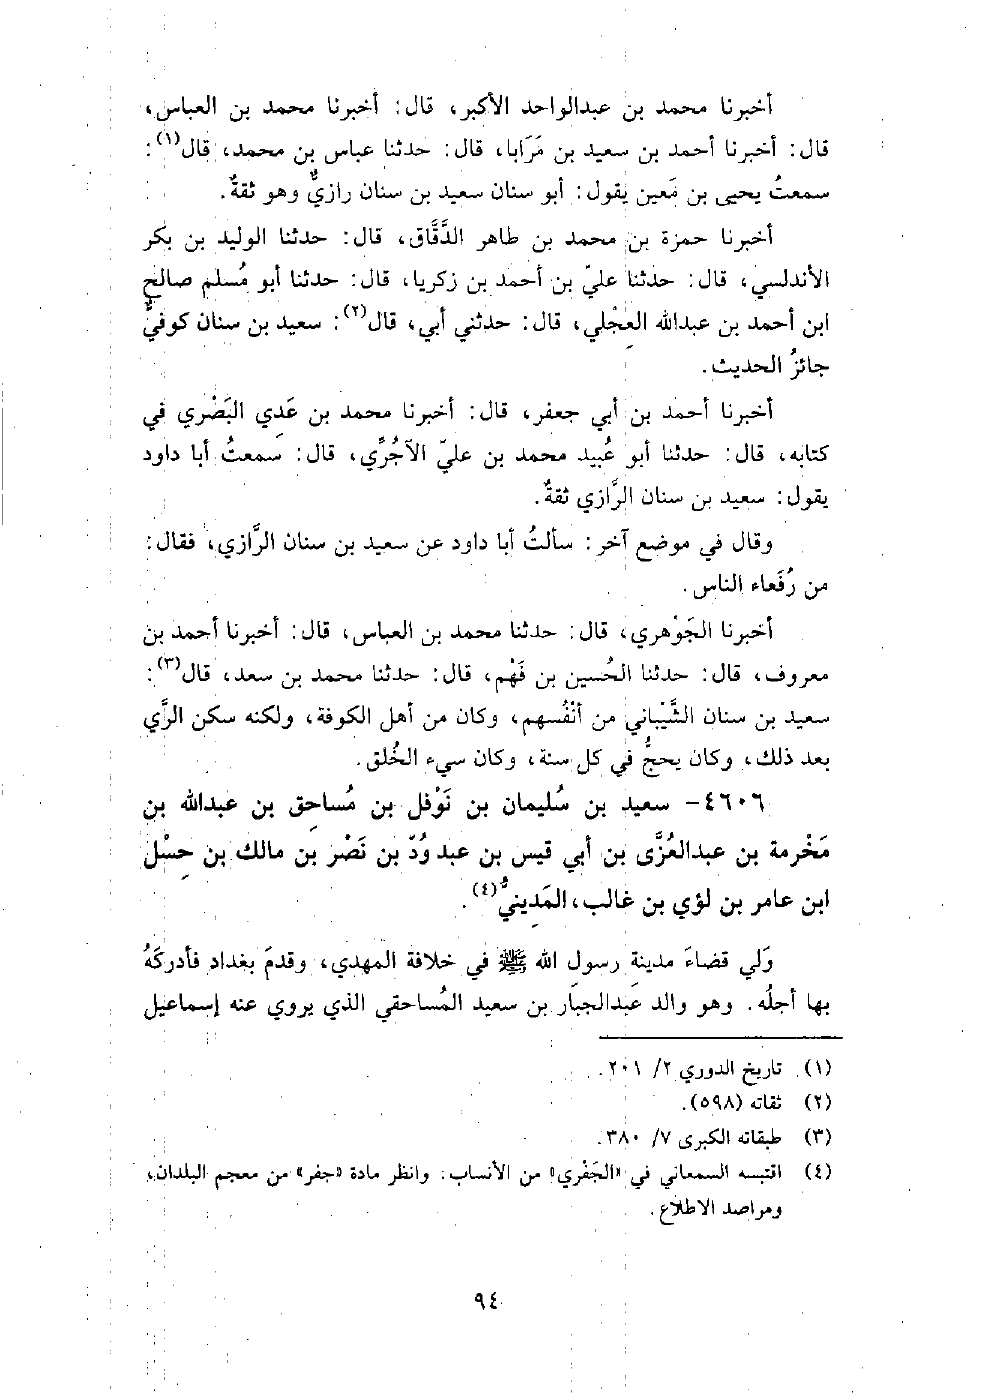 أخبرنا محمد بن عبدالواحد الأكبر، قال: أخبرنا محمد بن العباس،
قال: أخبرنا أحمد بن سعيد بن مَرَابا، قال: حدثنا عباس بن محمد، قال(١):
سمعتُ يحيى بن مَعين يقول: أبو سنان سعيد بن سنان رازيٌّ وهو ثقةٌ.
أخبرنا حمزة بن محمد بن طاهر الدَّقَّاق، قال: حدثنا الوليد بن بكر
الأندلسي، قال: حدثنا عليّ بن أحمد بن زكريا، قال: حدثنا أبو مُسلم صالح
ابن أحمد بن عبدالله العِجْلي، قال: حدثني أبي، قال(٢): سعيد بن سنان كوفيٌّ
جائزُ الحديث.
أخبرنا أحمد بن أبي جعفر، قال: أخبرنا محمد بن عَدِي البَصْري في
كتابه، قال: حدثنا أبو عُبيد محمد بن عليّ الآجُرِّي، قال: سمعتُ أبا داود
يقول: سعيد بن سنان الرَّازي ثقةٌ.
وقال في موضع آخر: سألتُ أبا داود عن سعيد بن سنان الرَّازي، فقال:
من رُفَعاء الناس.
أخبرنا الجَوْهري، قال: حدثنا محمد بن العباس، قال: أخبرنا أحمد بن
معروف، قال: حدثنا الحُسين بن فَهْم، قال: حدثنا محمد بن سعد، قال(٣):
سعيد بن سنان الشَّيْباني من أنْفُسهم، وكان من أهل الكوفة، ولكنه سكن الرَّي
بعد ذلك، وكان يحجُّ في كل سنة، وكان سيء الخُلق.
٤٦٠٦- سعيد بن سُليمان بن نَوْفل بن مُساحِق بن عبدالله بن
مَخْرمة بن عبدالعُزَّى بن أبي قيس بن عبد وُدّ بن نَصْر بن مالك بن حِسْل
ابن عامر بن لؤي بن غالب، المَدِينيُّ(٤).
وَلي قضاءَ مدينة رسول الله ﷺ في خلافة المهدي، وقدمَ بغداد فأدركَهُ
بها أجلُه. وهو والد عبدالجبار بن سعيد المُساحقي الذي يروي عنه إسماعيل
(١) تاريخ الدوري ٢/ ٢٠١.
(٢) ثقاته (٥٩٨).
(٣) طبقاته الكبرى ٧/ ٣٨٠.
(٤) اقتبسه السمعاني في «الجَفْري» من الأنساب. وانظر مادة «جفر» من معجم البلدان،
ومراصد الاطلاع.
٩٤